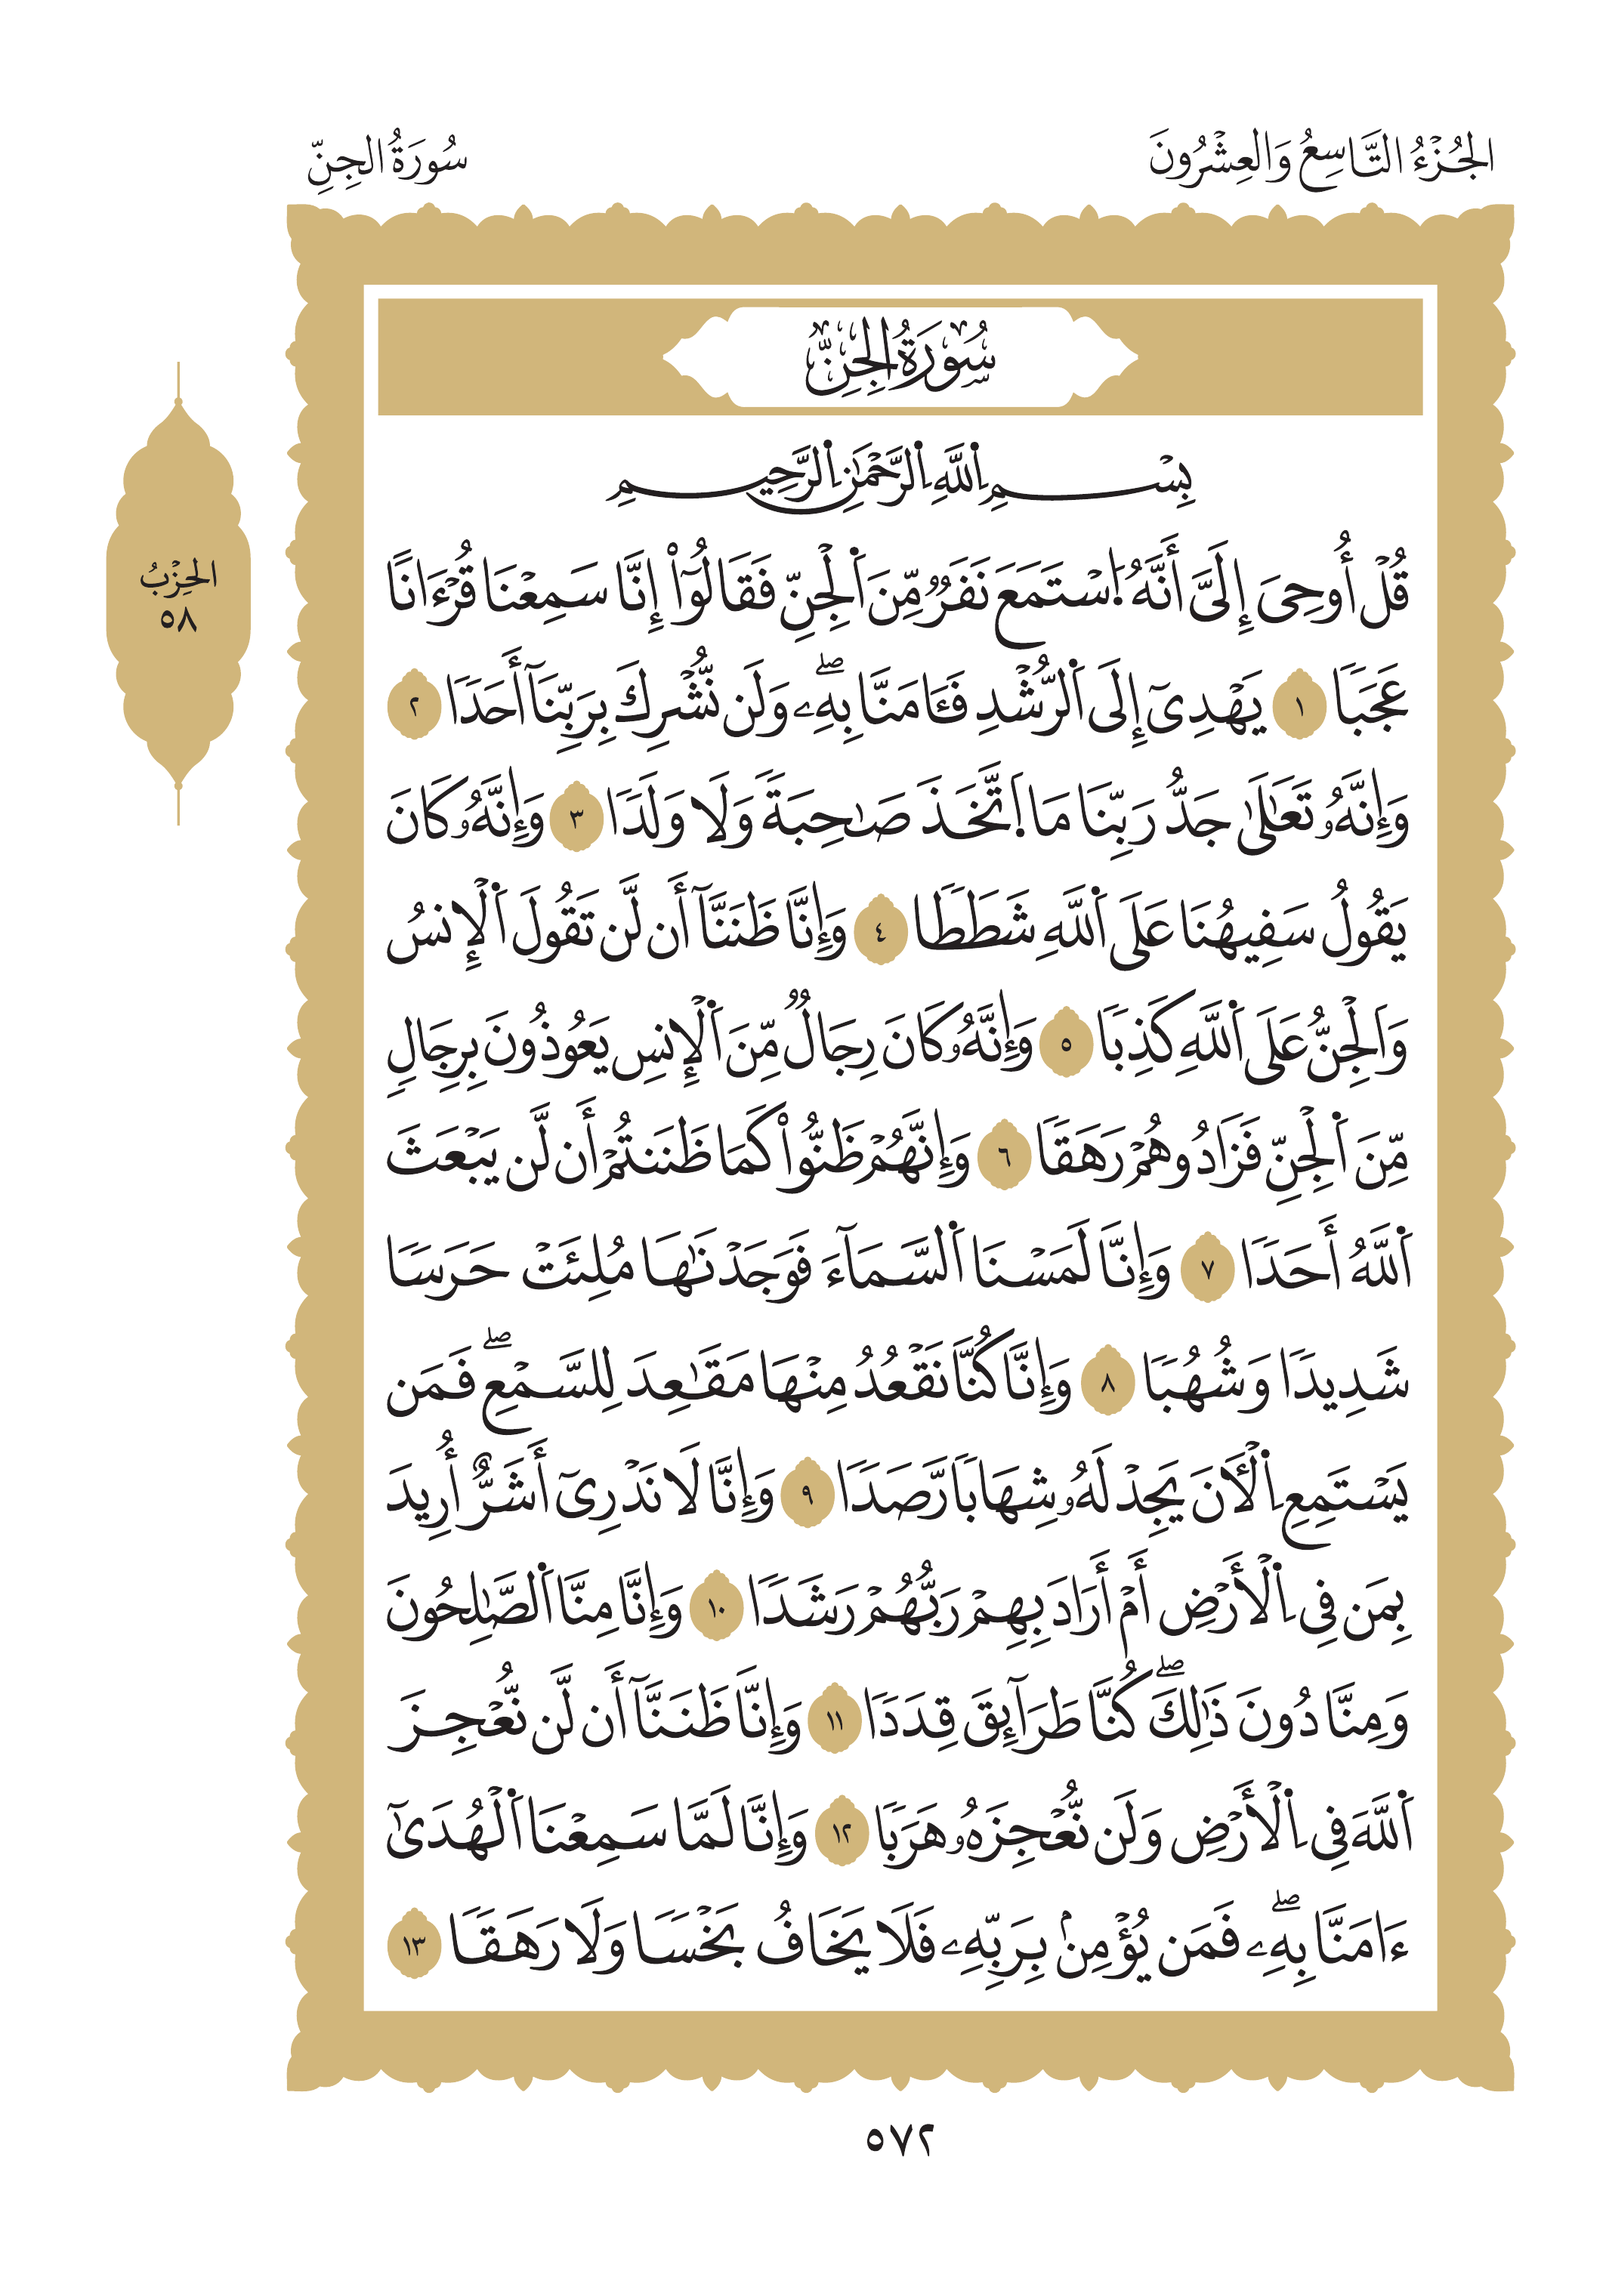 الجُزْءُ التَّاسِعُ وَالعِشْرُونَ
سُورَةُ الجِنِّ
الحِزْبُ
٥٨
سُورَةُ الجِنِّ
بِسْمِ اِ۬للَّهِ اِ۬لرَّحْمَٰنِ اِ۬لرَّحِيمِ
قُلْ أُوحِيَ إِلَيَّ أَنَّهُ اُ۪سْتَمَعَ نَفَرٞ مِّنَ اَ۬لْجِنِّ فَقَالُوٓاْ إِنَّا سَمِعْنَا قُرْءَانًا
عَجَبٗا ١ يَهْدِيٓ إِلَى اَ۬لرُّشْدِ فَـَٔامَنَّا بِهِۦۖ وَلَن نُّشْرِكَ بِرَبِّنَآ أَحَدٗا ٢
وَإِنَّهُۥ تَعَٰلَىٰ جَدُّ رَبِّنَا مَا اَ۪تَّخَذَ صَٰحِبَةٗ وَلَا وَلَدٗا ٣ وَإِنَّهُۥ كَانَ
يَقُولُ سَفِيهُنَا عَلَى اَ۬للَّهِ شَطَطٗا ٤ وَإِنَّا ظَنَنَّآ أَن لَّن تَقُولَ اَ۬لْإِنسُ
وَاَ۬لْجِنُّ عَلَى اَ۬للَّهِ كَذِبٗا ٥ وَإِنَّهُۥ كَانَ رِجَالٞ مِّنَ اَ۬لْإِنسِ يَعُوذُونَ بِرِجَالٖ
مِّنَ اَ۬لْجِنِّ فَزَادُوهُمْ رَهَقٗا ٦ وَإِنَّهُمْ ظَنُّواْ كَمَا ظَنَنتُمْ أَن لَّن يَبْعَثَ
اَ۬للَّهُ أَحَدٗا ٧ وَإِنَّا لَمَسْنَا اَ۬لسَّمَآءَ فَوَجَدْنَٰهَا مُلِئَتْ حَرَسٗا
شَدِيدٗا وَشُهُبٗا ٨ وَإِنَّا كُنَّا نَقْعُدُ مِنْهَا مَقَٰعِدَ لِلسَّمْعِۖ فَمَن
يَسْتَمِعِ اِ۬لْأٓنَ يَجِدْ لَهُۥ شِهَابٗا رَّصَدٗا ٩ وَإِنَّا لَا نَدْرِيٓ أَشَرٌّ أُرِيدَ
بِمَن فِي اِ۬لْأَرْضِ أَمْ أَرَادَ بِهِمْ رَبُّهُمْ رَشَدٗا ١٠ وَإِنَّا مِنَّا اَ۬لصَّٰلِحُونَ
وَمِنَّا دُونَ ذَٰلِكَۖ كُنَّا طَرَآئِقَ قِدَدٗا ١١ وَإِنَّا ظَنَنَّآ أَن لَّن نُّعْجِزَ
اَ۬للَّهَ فِي اِ۬لْأَرْضِ وَلَن نُّعْجِزَهُۥ هَرَبٗا ١٢ وَإِنَّا لَمَّا سَمِعْنَا اَ۬لْهُدَىٰٓ
ءَامَنَّا بِهِۦۖ فَمَن يُؤْمِنۢ بِرَبِّهِۦ فَلَا يَخَافُ بَخْسٗا وَلَا رَهَقٗا ١٣
٥٧٢